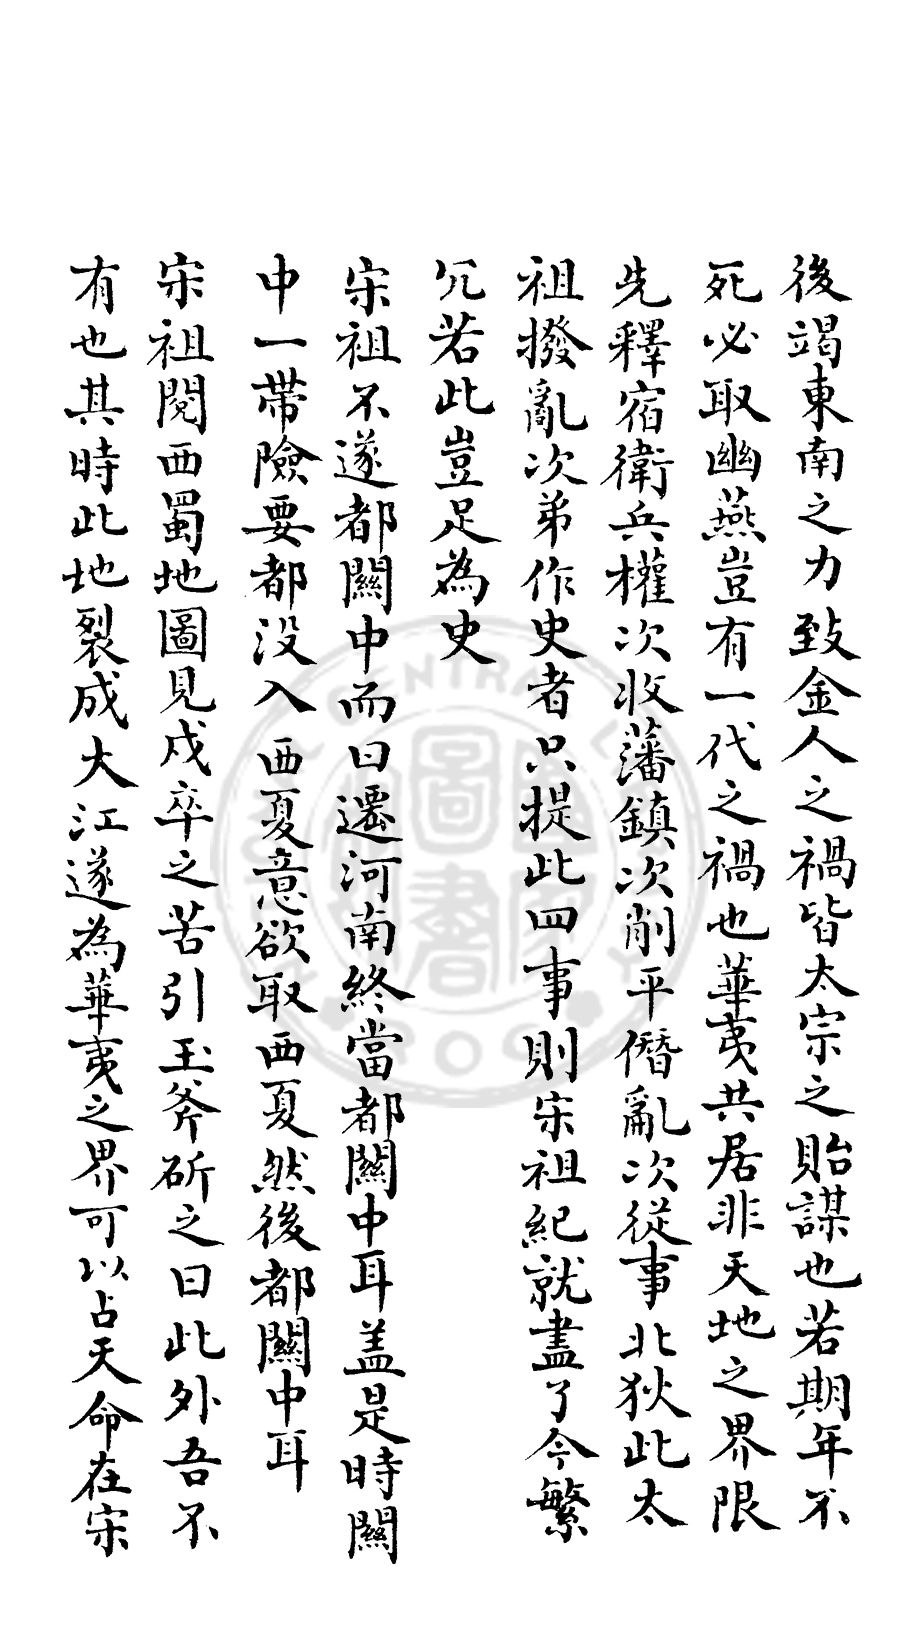 後竭東南之力致金人之禍皆太宗之貽謀也若期年不
死必取幽燕豈有一代之禍也華夷共居非天地之界限
先釋宿衛兵權次收藩鎮次削平僭亂次從事北狄此太
祖撥亂次弟作史者只提此四事則宋祖紀就盡了今繁
冗若此豈足為史
宋祖不遂都關中而曰遷河南終當都關中耳盖是時關
中一帶險要都没入西夏意欲取西夏然後都關中耳
宋祖閱西蜀地圖見戍卒之苦引玉斧斫之曰此外吾不
有也其時此地裂成大江遂為華夷之界可以占天命在宋